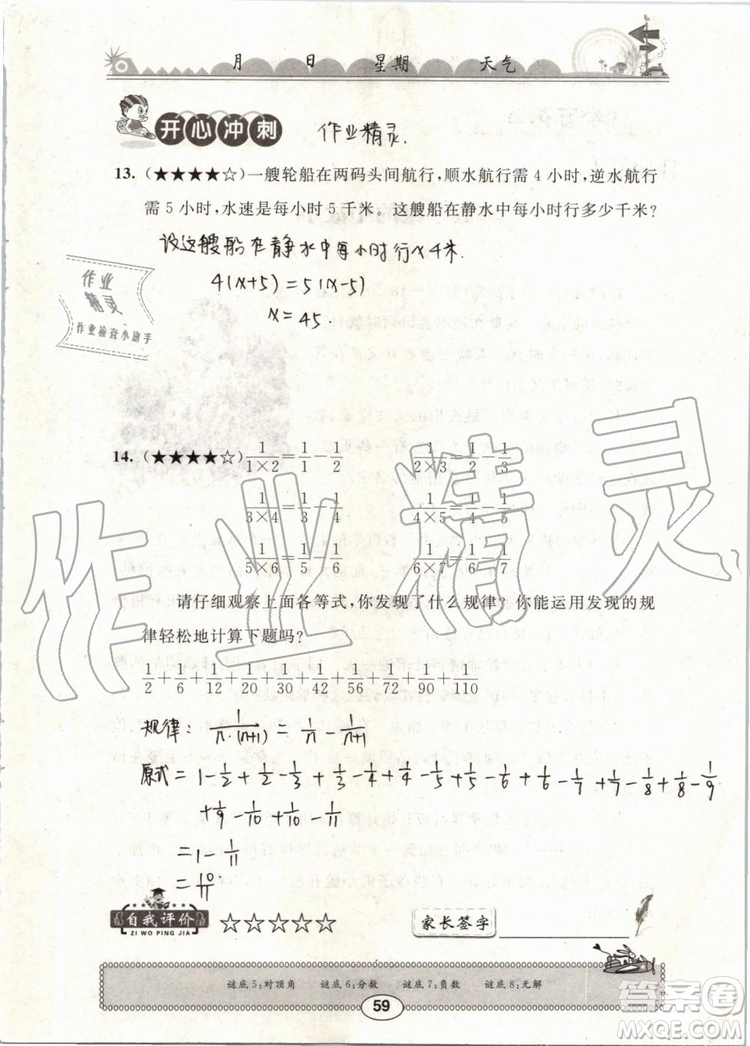 月 日 星期 天气
开心冲刺 作业精灵.
13. (★★★★☆)一艘轮船在两码头间航行，顺水航行需 4 小时，逆水航行
需 5 小时，水速是每小时 5 千米。这艘船在静水中每小时行多少千米？
设这艘船在静水中每小时行x千米.
4(x+5)=5(x-5)
x=45.
作业
精灵
作业检查小助手
14. (★★★★☆) 1/(1×2)=1/1-1/2 1/(2×3)=1/2-1/3
1/(3×4)=1/3-1/4 1/(4×5)=1/4-1/5
1/(5×6)=1/5-1/6 1/(6×7)=1/6-1/7
请仔细观察上面各等式，你发现了什么规律？你能运用发现的规
律轻松地计算下题吗？
1/2+1/6+1/12+1/20+1/30+1/42+1/56+1/72+1/90+1/110
规律: 1/(n·(n+1))=1/n-1/(n+1)
原式=1-1/2+1/2-1/3+1/3-1/4+1/4-1/5+1/5-1/6+1/6-1/7+1/7-1/8+1/8-1/9
+1/9-1/10+1/10-1/11
=1-1/11
=10/11.
作业精灵
自我评价 ☆☆☆☆☆ 家长签字
ZI WO PING JIA
谜底 5：对顶角 谜底 6：分数 谜底 7：负数 谜底 8：无解
59
答案圈
MXQE.COM